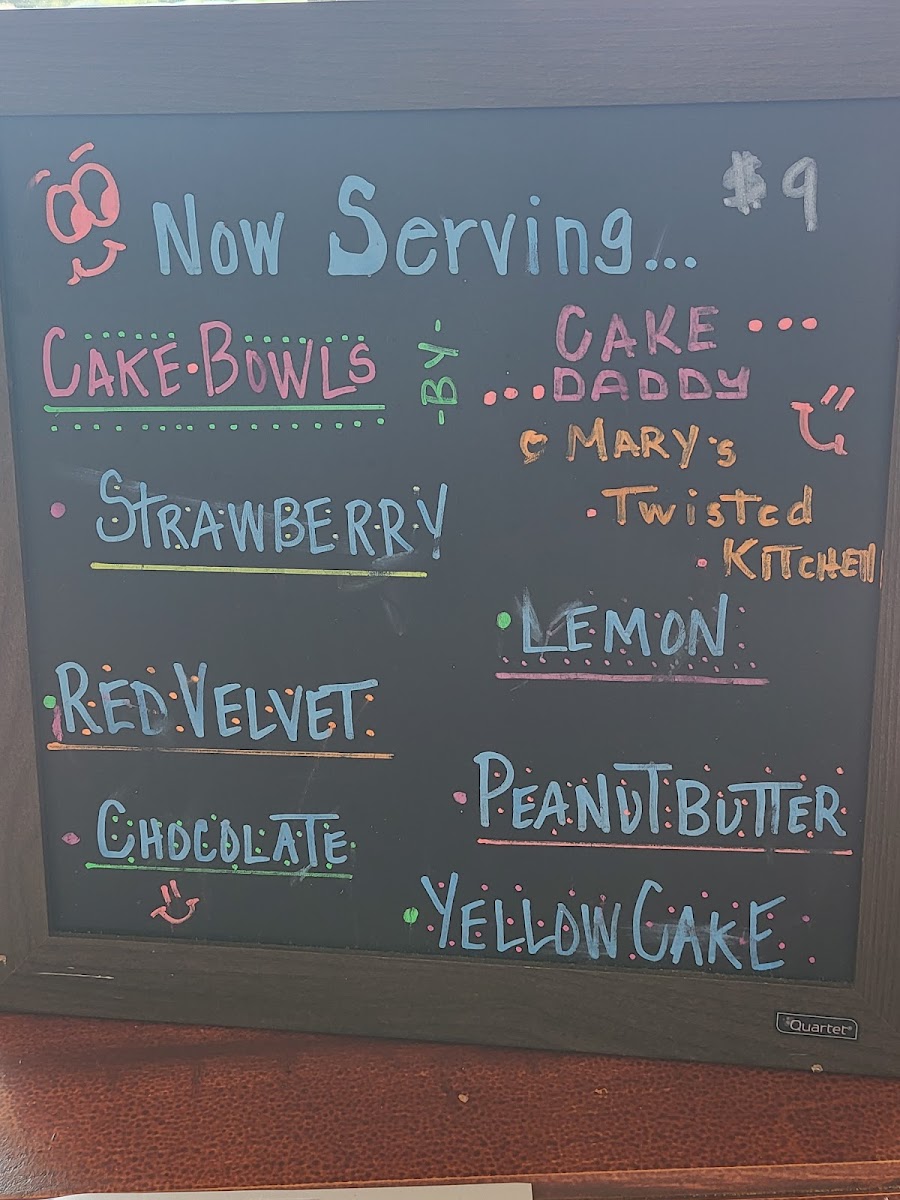 Now Serving... $9
CAKE·BOWLS
-BY-
CAKE...
...DADDY
MARY'S
Twisted
KITCHEN
STRAWBERRY
LEMON
RED VELVET
PEANUT BUTTER
CHOCOLATE
YELLOW CAKE
Quartet